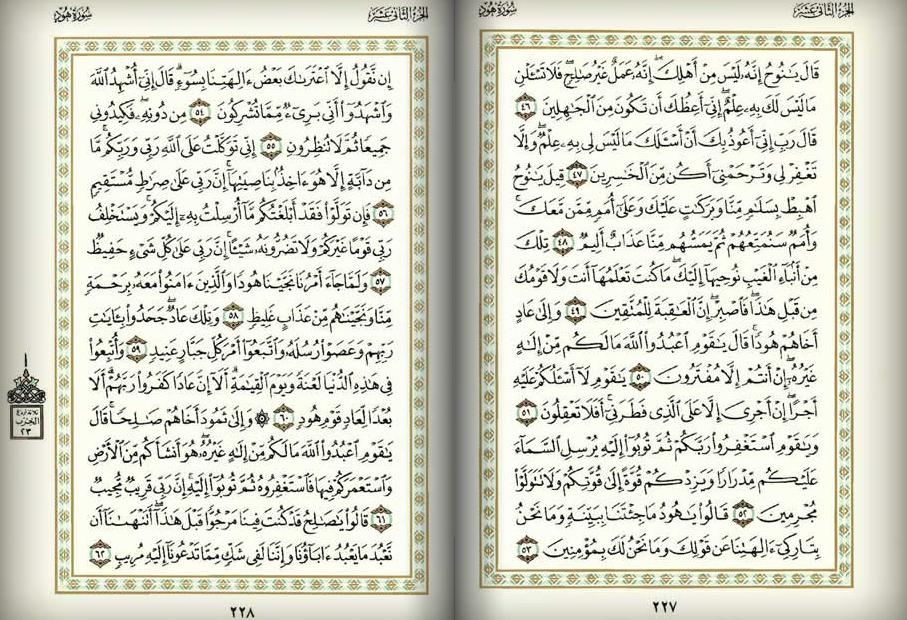 الجزء الثاني عشر
سورة هود
قَالَ يَـٰنُوحُ إِنَّهُۥ لَيْسَ مِنْ أَهْلِكَ ۖ إِنَّهُۥ عَمَلٌ غَيْرُ صَـٰلِحٍ ۖ فَلَا تَسْـَٔلْنِ
مَا لَيْسَ لَكَ بِهِۦ عِلْمٌ ۖ إِنِّىٓ أَعِظُكَ أَن تَكُونَ مِنَ ٱلْجَـٰهِلِينَ ٤٦
قَالَ رَبِّ إِنِّىٓ أَعُوذُ بِكَ أَنْ أَسْـَٔلَكَ مَا لَيْسَ لِى بِهِۦ عِلْمٌ ۖ وَإِلَّا
تَغْفِرْ لِى وَتَرْحَمْنِىٓ أَكُن مِّنَ ٱلْخَـٰسِرِينَ ٤٧ قِيلَ يَـٰنُوحُ
ٱهْبِطْ بِسَلَـٰمٍ مِّنَّا وَبَرَكَـٰتٍ عَلَيْكَ وَعَلَىٰٓ أُمَمٍ مِّمَّن مَّعَكَ ۚ
وَأُمَمٌ سَنُمَتِّعُهُمْ ثُمَّ يَمَسُّهُم مِّنَّا عَذَابٌ أَلِيمٌ ٤٨ تِلْكَ
مِنْ أَنۢبَآءِ ٱلْغَيْبِ نُوحِيهَآ إِلَيْكَ ۖ مَا كُنتَ تَعْلَمُهَآ أَنتَ وَلَا قَوْمُكَ
مِن قَبْلِ هَـٰذَا ۖ فَٱصْبِرْ ۖ إِنَّ ٱلْعَـٰقِبَةَ لِلْمُتَّقِينَ ٤٩ وَإِلَىٰ عَادٍ
أَخَاهُمْ هُودًا ۚ قَالَ يَـٰقَوْمِ ٱعْبُدُوا۟ ٱللَّهَ مَا لَكُم مِّنْ إِلَـٰهٍ
غَيْرُهُۥٓ ۖ إِنْ أَنتُمْ إِلَّا مُفْتَرُونَ ٥٠ يَـٰقَوْمِ لَآ أَسْـَٔلُكُمْ عَلَيْهِ
أَجْرًا ۖ إِنْ أَجْرِىَ إِلَّا عَلَى ٱلَّذِى فَطَرَنِىٓ ۚ أَفَلَا تَعْقِلُونَ ٥١
وَيَـٰقَوْمِ ٱسْتَغْفِرُوا۟ رَبَّكُمْ ثُمَّ تُوبُوٓا۟ إِلَيْهِ يُرْسِلِ ٱلسَّمَآءَ
عَلَيْكُم مِّدْرَارًا وَيَزِدْكُمْ قُوَّةً إِلَىٰ قُوَّتِكُمْ وَلَا تَتَوَلَّوْا۟
مُجْرِمِينَ ٥٢ قَالُوا۟ يَـٰهُودُ مَا جِئْتَنَا بِبَيِّنَةٍ وَمَا نَحْنُ
بِتَارِكِىٓ ءَالِهَتِنَا عَن قَوْلِكَ وَمَا نَحْنُ لَكَ بِمُؤْمِنِينَ ٥٣
٢٢٧
الجزء الثاني عشر
سورة هود
إِن نَّقُولُ إِلَّا ٱعْتَرَىٰكَ بَعْضُ ءَالِهَتِنَا بِسُوٓءٍ ۗ قَالَ إِنِّىٓ أُشْهِدُ ٱللَّهَ
وَٱشْهَدُوٓا۟ أَنِّى بَرِىٓءٌ مِّمَّا تُشْرِكُونَ ٥٤ مِن دُونِهِۦ ۖ فَكِيدُونِى
جَمِيعًا ثُمَّ لَا تُنظِرُونِ ٥٥ إِنِّى تَوَكَّلْتُ عَلَى ٱللَّهِ رَبِّى وَرَبِّكُم ۚ مَّا
مِن دَآبَّةٍ إِلَّا هُوَ ءَاخِذٌۢ بِنَاصِيَتِهَآ ۚ إِنَّ رَبِّى عَلَىٰ صِرَٰطٍ مُّسْتَقِيمٍ
٥٦ فَإِن تَوَلَّوْا۟ فَقَدْ أَبْلَغْتُكُم مَّآ أُرْسِلْتُ بِهِۦٓ إِلَيْكُمْ ۚ وَيَسْتَخْلِفُ
رَبِّى قَوْمًا غَيْرَكُمْ وَلَا تَضُرُّونَهُۥ شَيْـًٔا ۚ إِنَّ رَبِّى عَلَىٰ كُلِّ شَىْءٍ حَفِيظٌ
٥٧ وَلَمَّا جَآءَ أَمْرُنَا نَجَّيْنَا هُودًا وَٱلَّذِينَ ءَامَنُوا۟ مَعَهُۥ بِرَحْمَةٍ
مِّنَّا وَنَجَّيْنَـٰهُم مِّنْ عَذَابٍ غَلِيظٍ ٥٨ وَتِلْكَ عَادٌ ۖ جَحَدُوا۟ بِـَٔايَـٰتِ
رَبِّهِمْ وَعَصَوْا۟ رُسُلَهُۥ وَٱتَّبَعُوٓا۟ أَمْرَ كُلِّ جَبَّارٍ عَنِيدٍ ٥٩ وَأُتْبِعُوا۟
فِى هَـٰذِهِ ٱلدُّنْيَا لَعْنَةً وَيَوْمَ ٱلْقِيَـٰمَةِ ۗ أَلَآ إِنَّ عَادًا كَفَرُوا۟ رَبَّهُمْ ۗ أَلَا
بُعْدًا لِّعَادٍ قَوْمِ هُودٍ ٦٠ ۞ وَإِلَىٰ ثَمُودَ أَخَاهُمْ صَـٰلِحًا ۚ قَالَ
يَـٰقَوْمِ ٱعْبُدُوا۟ ٱللَّهَ مَا لَكُم مِّنْ إِلَـٰهٍ غَيْرُهُۥ ۖ هُوَ أَنشَأَكُم مِّنَ ٱلْأَرْضِ
وَٱسْتَعْمَرَكُمْ فِيهَا فَٱسْتَغْفِرُوهُ ثُمَّ تُوبُوٓا۟ إِلَيْهِ ۚ إِنَّ رَبِّى قَرِيبٌ مُّجِيبٌ
٦١ قَالُوا۟ يَـٰصَـٰلِحُ قَدْ كُنتَ فِينَا مَرْجُوًّا قَبْلَ هَـٰذَآ ۖ أَتَنْهَىٰنَآ أَن
نَّعْبُدَ مَا يَعْبُدُ ءَابَآؤُنَا وَإِنَّنَا لَفِى شَكٍّ مِّمَّا تَدْعُونَآ إِلَيْهِ مُرِيبٍ ٦٢
ثلاثة أرباع
الحزب
٢٣
٢٢٨